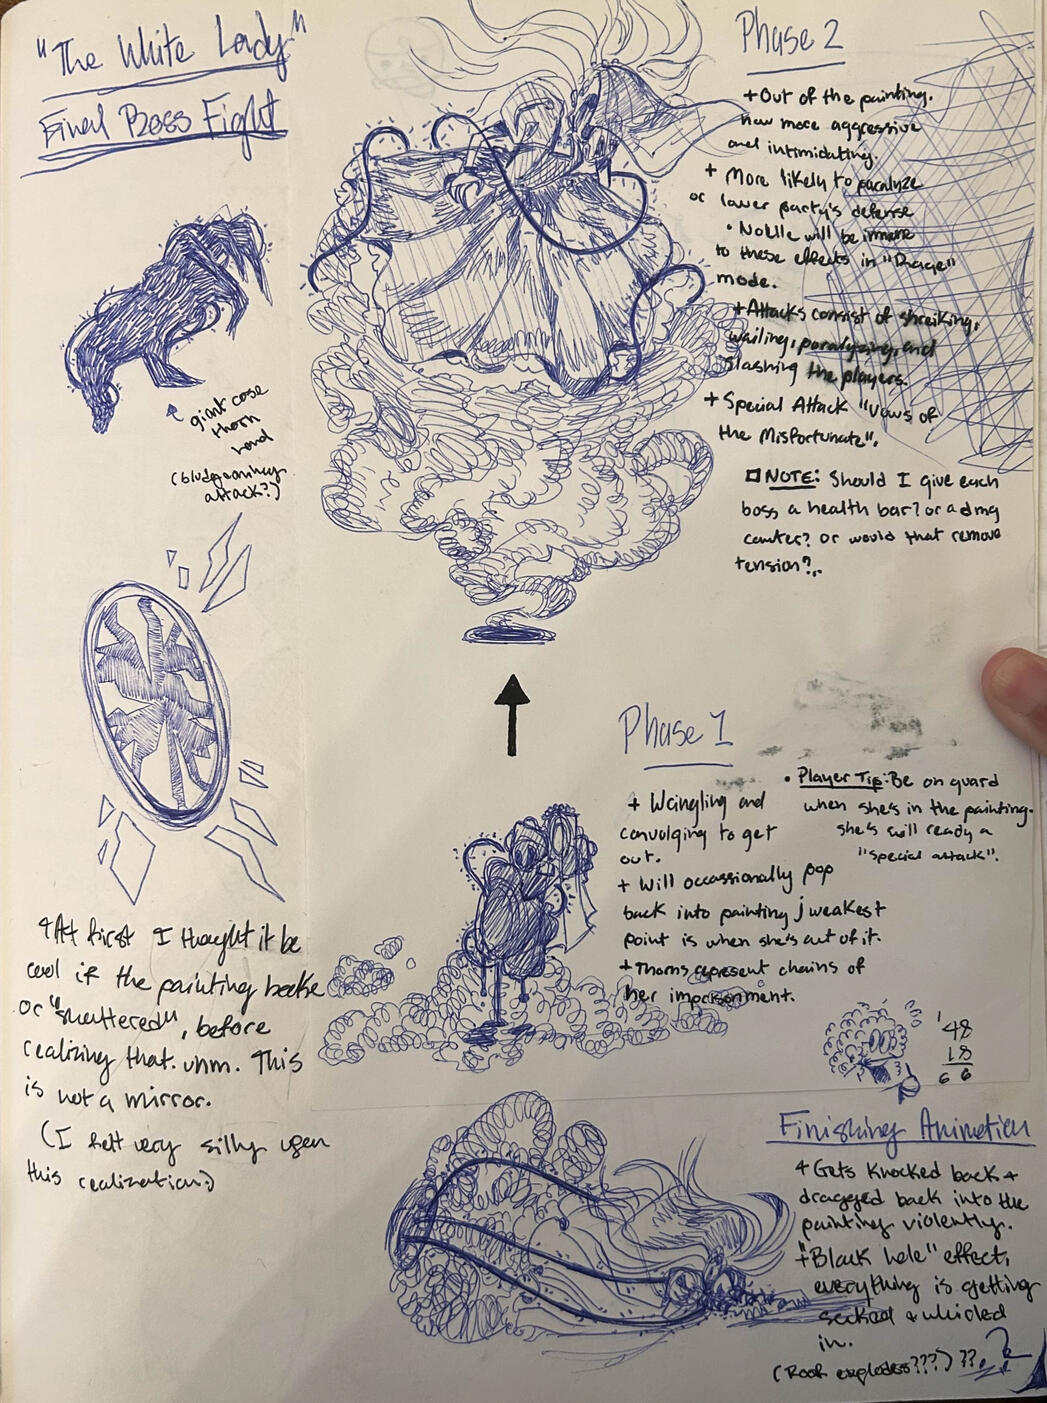 "The White Lady"
Final Boss Fight
Phase 2
+ Out of the painting.
now more aggressive
and intimidating.
+ More likely to paralyze
or lower party's defense
• Noelle will be immune
to these effects in "Rage"
mode.
+ Attacks consist of shreiking,
wailing, paralyzing, and
slashing the players.
+ Special Attack "Vows of
the Misfortunate".
NOTE: Should I give each
boss a health bar? or a dmg
counter? or would that remove
tension?..
giant rose
thorn
hand
(bludgeoning
attack?)
Phase 1
+ Wringling and
convulging to get
out.
+ Will occassionally pop
back into painting; weakest
point is when she's out of it.
+ Thorns represent chains of
her imprisonment.
• Player Tip: Be on guard
when she's in the painting.
she's will ready a
"special attack".
+ At first I thought it be
cool if the painting broke
or "shattered", before
realizing that. uhm. This
is not a mirror.
(I felt very silly upon
this realization:)
'48
18
66
Finishing Animation
+ Gets knocked back +
dragged back into the
painting violently.
+ "Black hole" effect,
everything is getting
sucked + whirled
in.
(Roof explodes???) ??..?